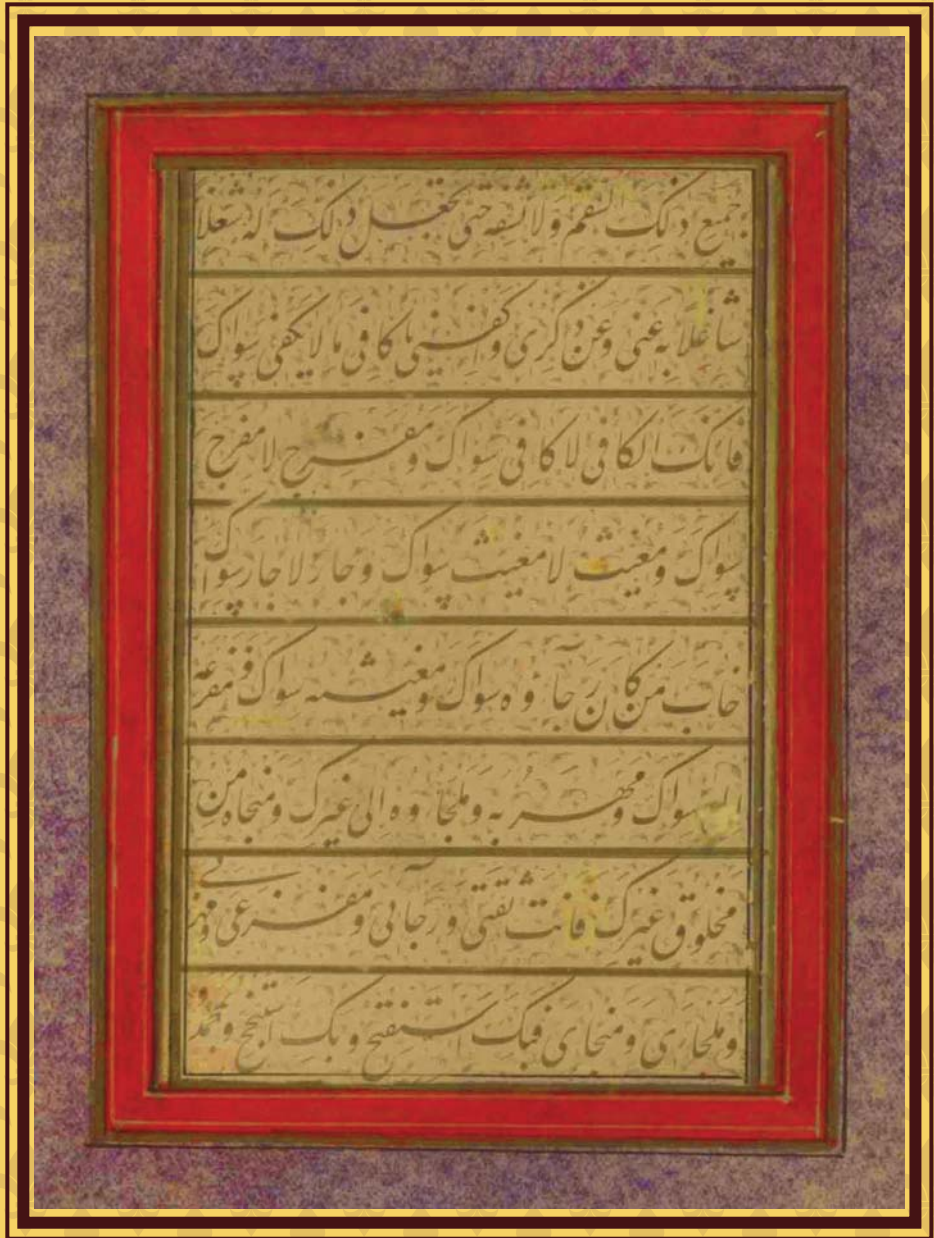 جمیع ذلک السقم ولا تشفه حتی تجعل ذلک له شغلا
شاغلا به عنی وعن ذکری واکفنی یا کافی ما لا یکفی سواک
فانک الکافی لا کافی سواک ومفرج لا مفرج
سواک ومغیث لا مغیث سواک وجار لا جار سواک
خاب من کان رجآؤه سواک ومغیثه سواک ومفزعه
الی سواک ومهربه وملجاؤه الی غیرک ومنجاه من
مخلوق غیرک فانت ثقتی ورجآئی ومفزعی ومهربی
وملجای ومنجای فبک استفتح وبک استنجح وبمحمد